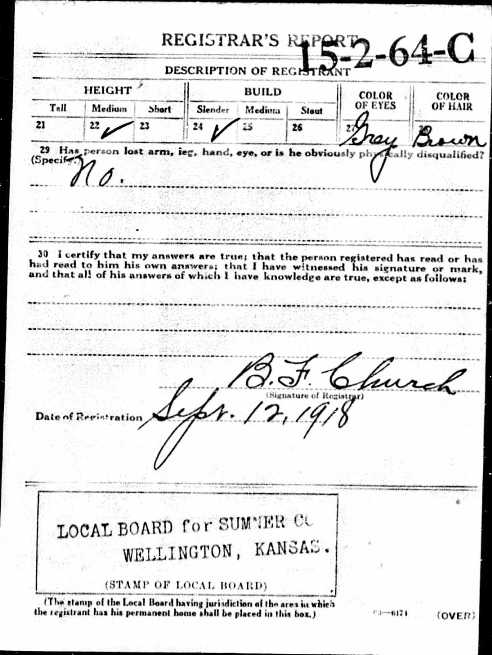 REGISTRAR'S REPORT
15-2-64-C
DESCRIPTION OF REGISTRANT
HEIGHT BUILD COLOR OF EYES COLOR OF HAIR
Tall Medium Short Slender Medium Stout
21 22 ✓ 23 24 ✓ 25 26 27 Gray Brown
29 Has person lost arm, leg, hand, eye, or is he obviously physically disqualified?
(Specify.) No.
30 I certify that my answers are true; that the person registered has read or has
had read to him his own answers; that I have witnessed his signature or mark,
and that all of his answers of which I have knowledge are true, except as follows:
B. F. Church
(Signature of Registrar)
Date of Registration Sept. 12, 1918
LOCAL BOARD for SUMNER CO
WELLINGTON, KANSAS.
(STAMP OF LOCAL BOARD)
(The stamp of the Local Board having jurisdiction of the area in which
the registrant has his permanent home shall be placed in this box.)
03—6171 (OVER)